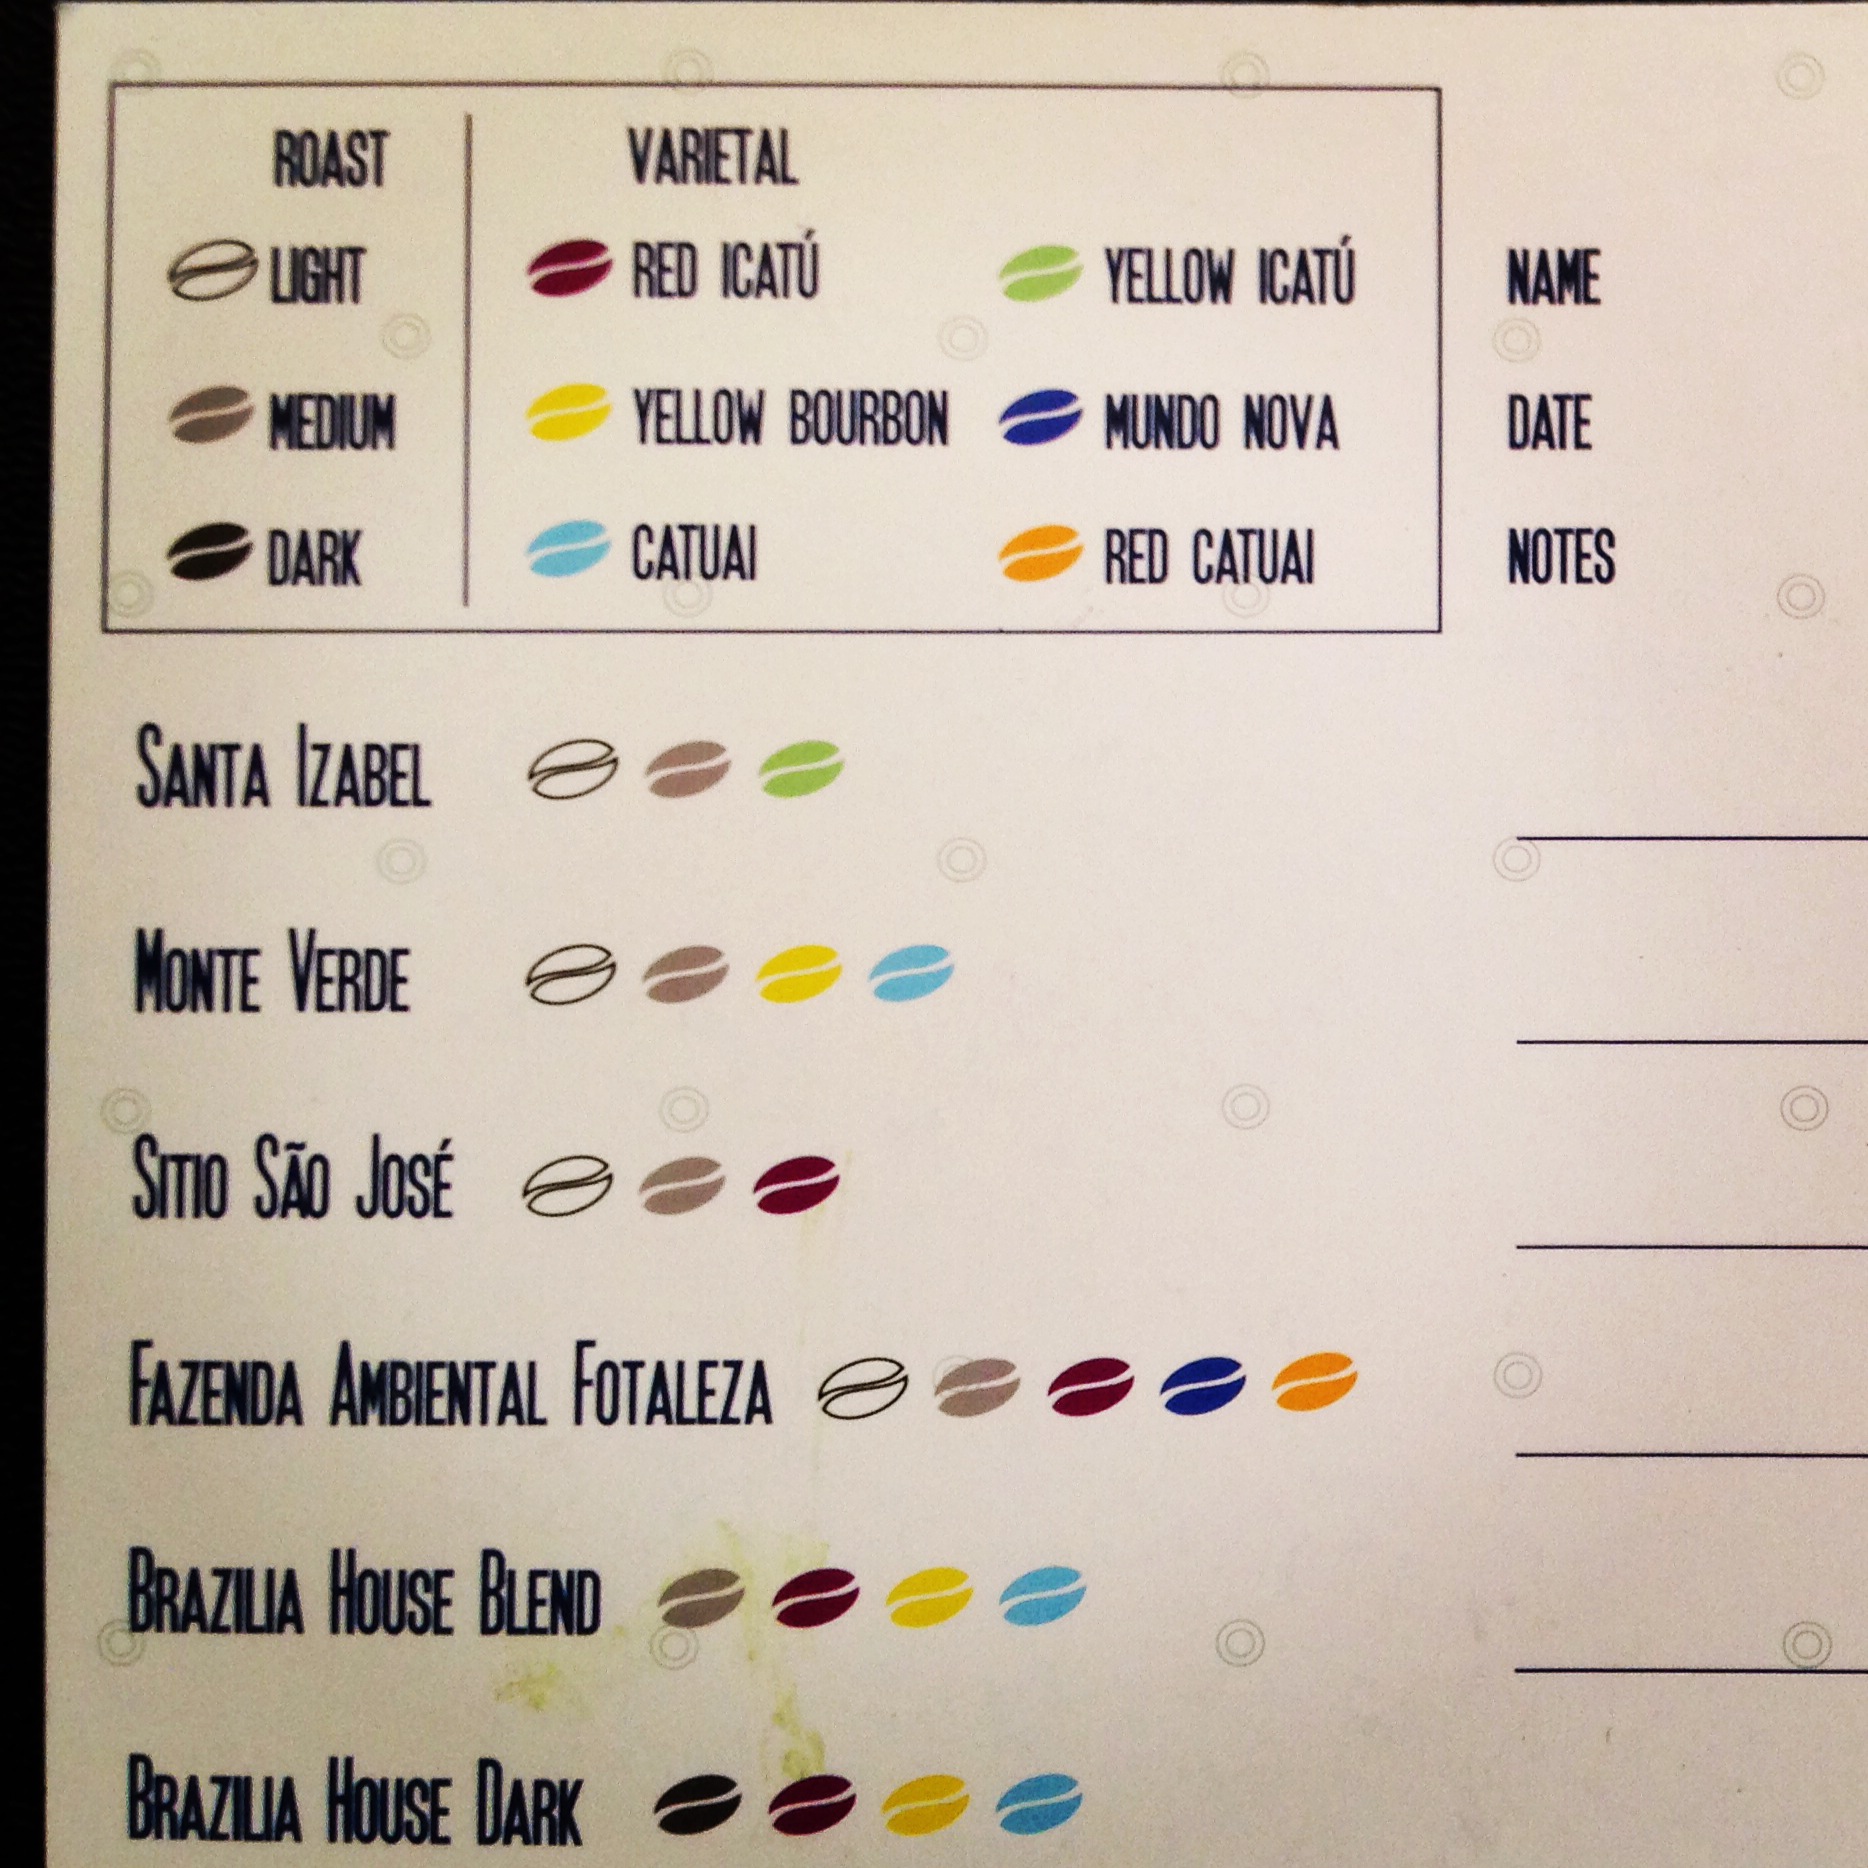 ROAST VARIETAL
LIGHT RED ICATÚ YELLOW ICATÚ NAME
MEDIUM YELLOW BOURBON MUNDO NOVA DATE
DARK CATUAI RED CATUAI NOTES
SANTA IZABEL
MONTE VERDE
SITIO SÃO JOSÉ
FAZENDA AMBIENTAL FOTALEZA
BRAZILIA HOUSE BLEND
BRAZILIA HOUSE DARK